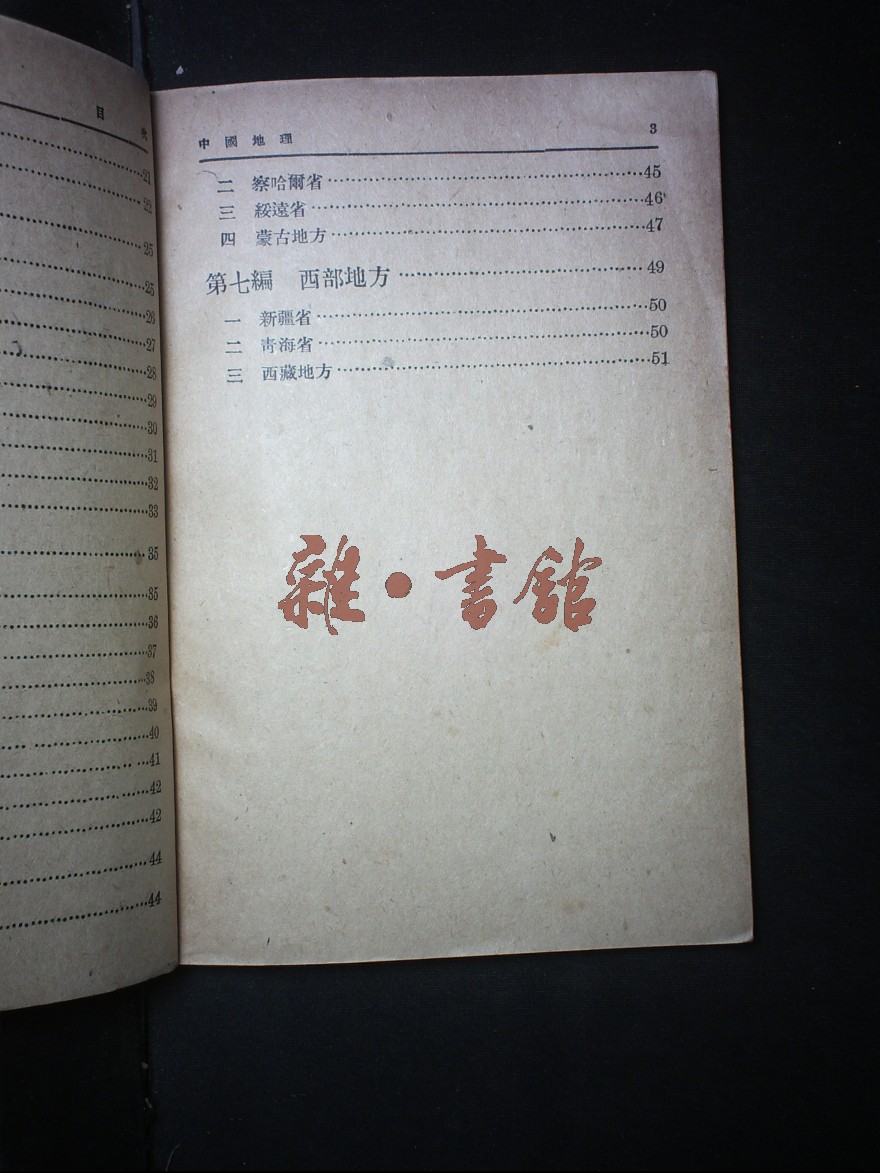 目 次
21
22
25
25
26
27
28
29
30
31
32
33
35
35
36
37
38
39
40
41
42
42
44
44
中國地理 3
二 察哈爾省 45
三 綏遠省 46
四 蒙古地方 47
第七編 西部地方 49
一 新疆省 50
二 靑海省 50
三 西藏地方 51
雜·書館